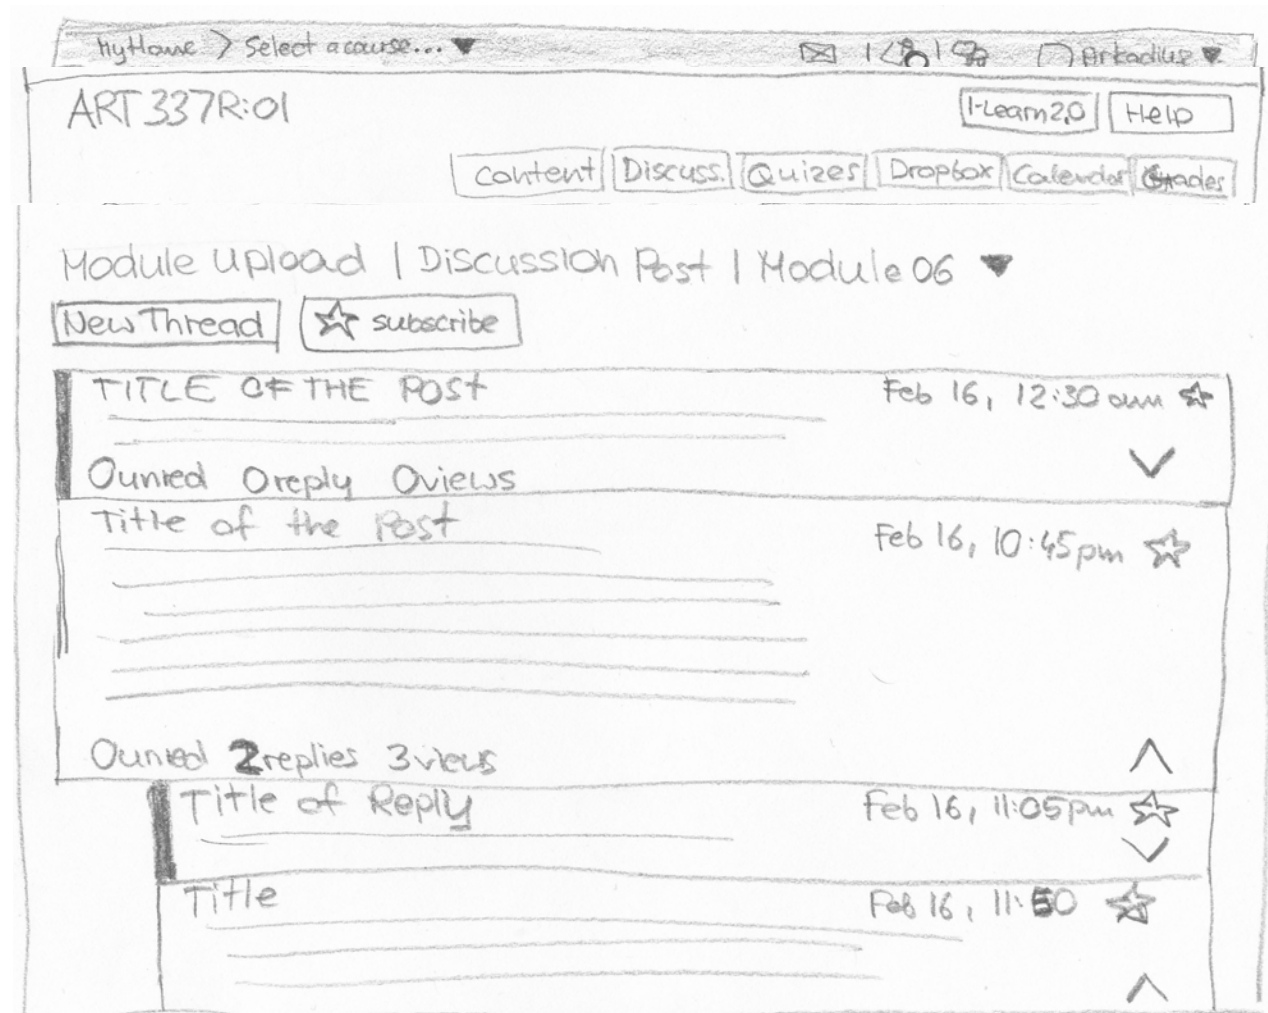 MyHome > Select a course... Arkadius
ART 337R:01
I-Learn 2.0 Help
Content Discuss. Quizes Dropbox Calendar Grades
Module Upload | Discussion Post | Module 06
New Thread subscribe
TITLE OF THE POST Feb 16, 12:30 am
0 unred 0 reply 0 views
Title of the Post Feb 16, 10:45pm
0 unred 2 replies 3 views
Title of Reply Feb 16, 11:05pm
Title Feb 16, 11:50